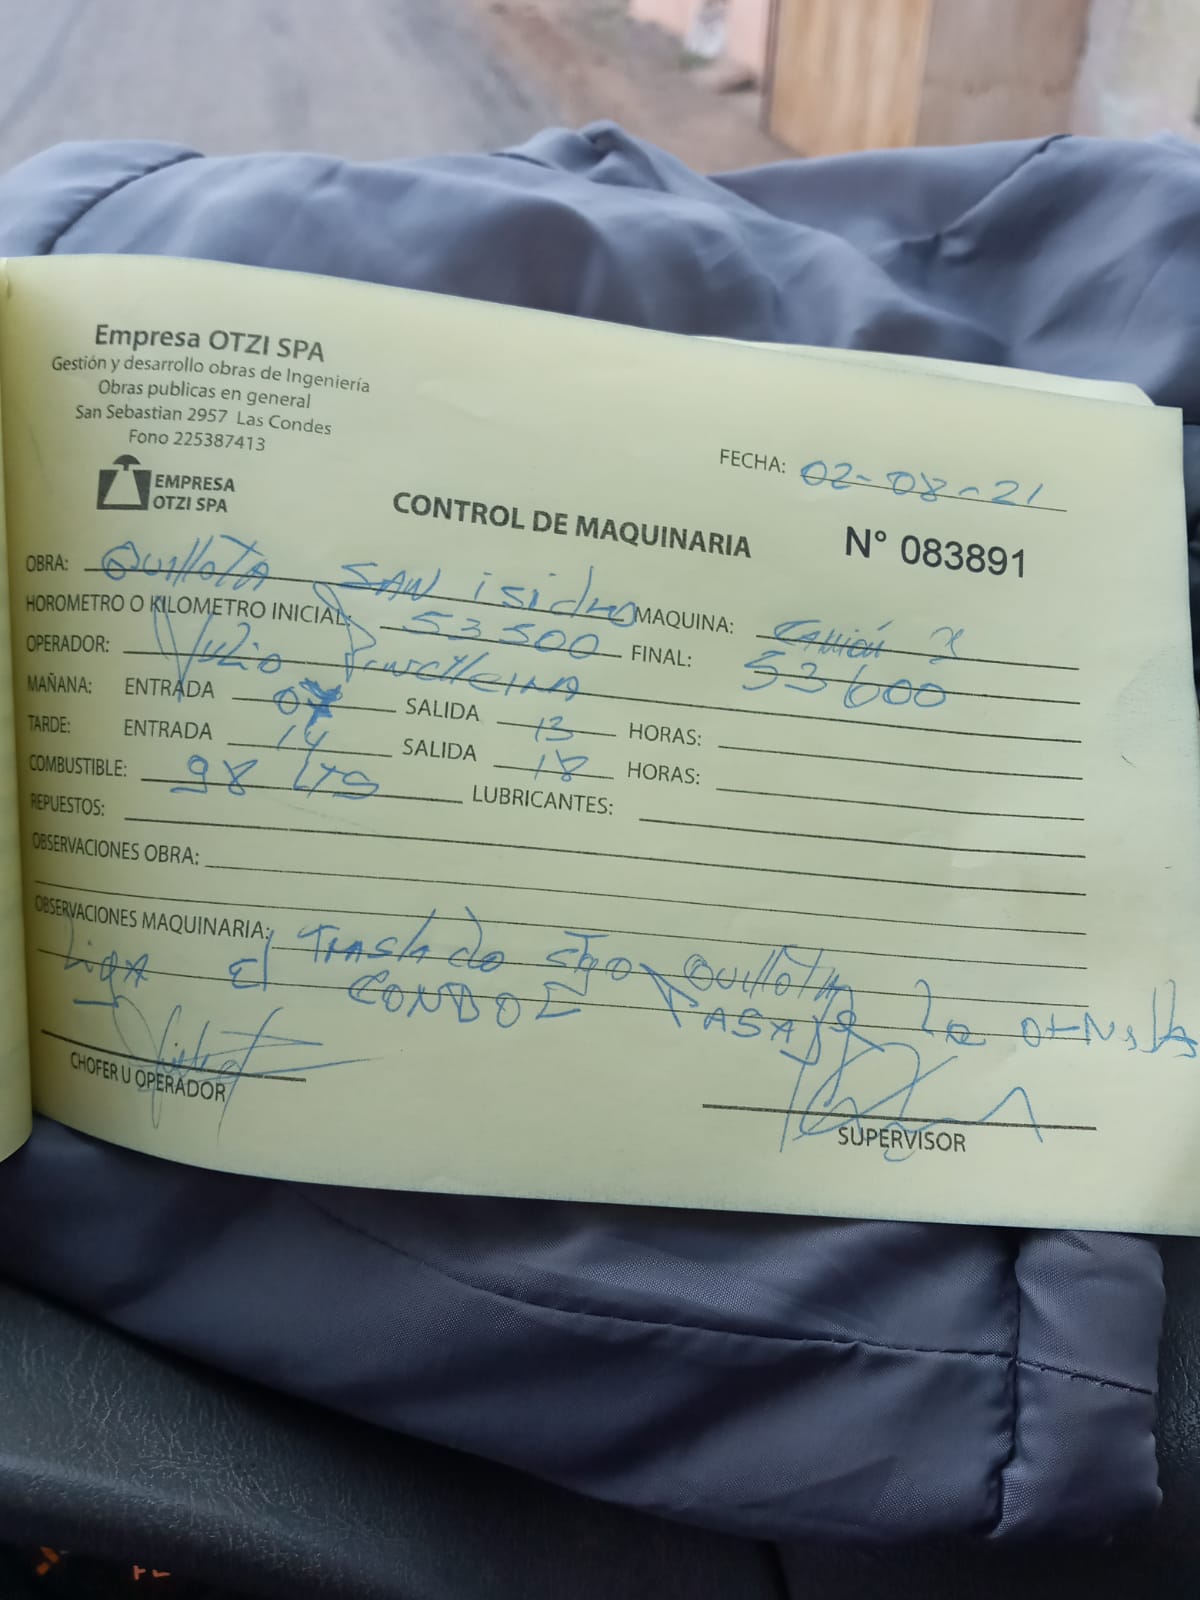 Empresa OTZI SPA
Gestión y desarrollo obras de Ingeniería
Obras publicas en general
San Sebastian 2957 Las Condes
Fono 225387413
EMPRESA
OTZI SPA
FECHA: 02-08-21
CONTROL DE MAQUINARIA N° 083891
OBRA: Quillota SAN isidro MAQUINA: CAMIÓN
HOROMETRO O KILOMETRO INICIAL: 53500 FINAL: 53600
OPERADOR: Julio
MAÑANA: ENTRADA SALIDA 13 HORAS:
TARDE: ENTRADA 14 SALIDA 18 HORAS:
COMBUSTIBLE: 98 LTS LUBRICANTES:
REPUESTOS:
OBSERVACIONES OBRA:
OBSERVACIONES MAQUINARIA: TRASLADO STGO QUILLOTA
El
CHOFER U OPERADOR
SUPERVISOR